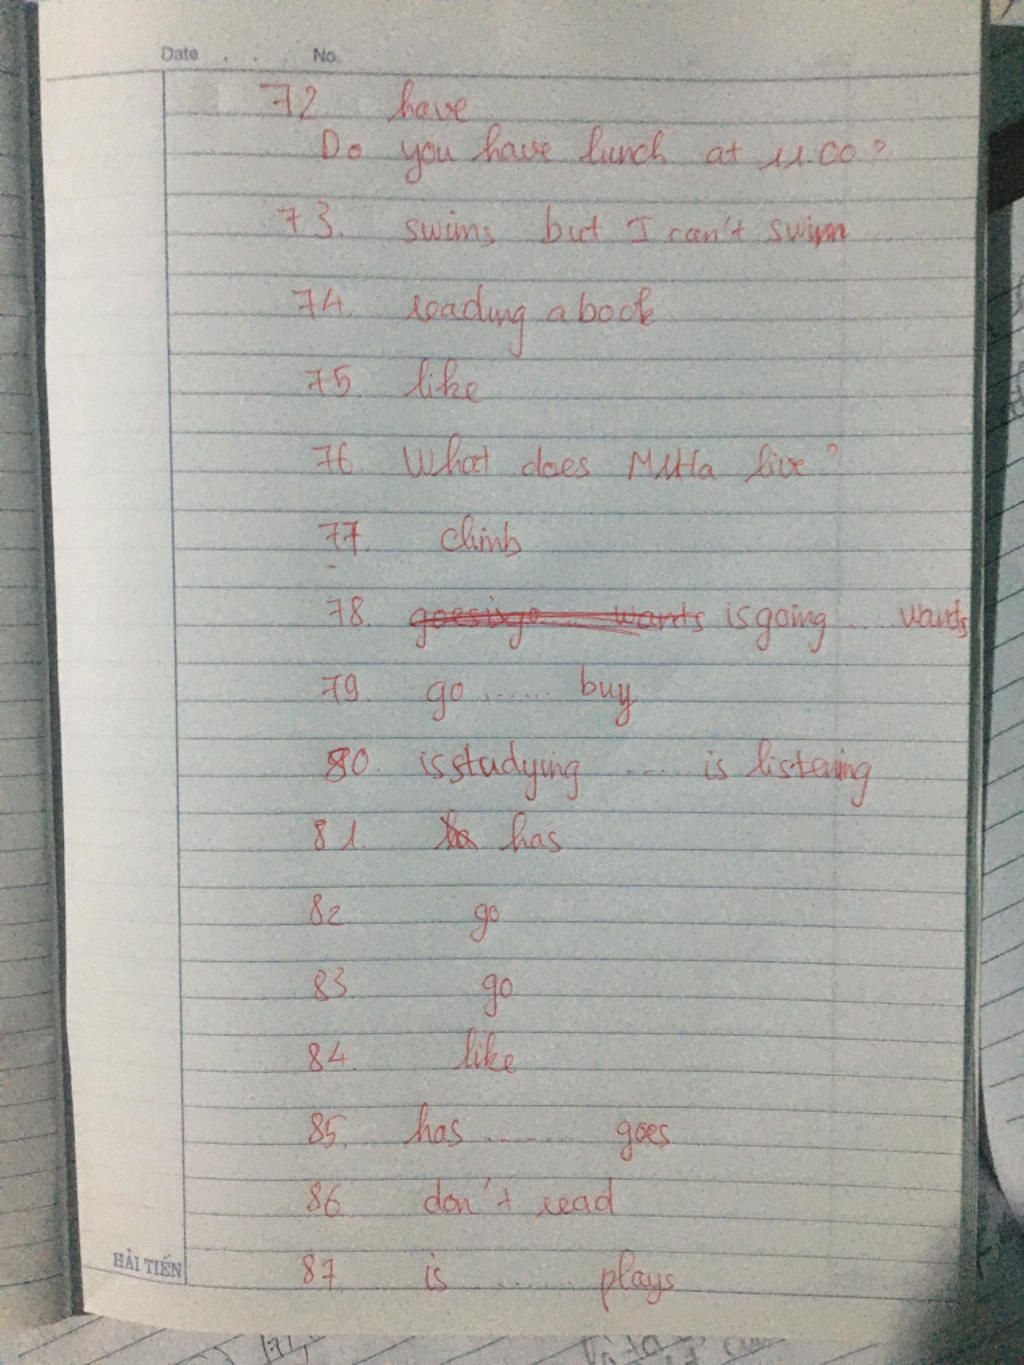 Date . . . No.
72 have
Do you have lunch at 11.00?
73. swims but I can't swim
74. reading a book
75. like
76. What does Mr Ha live?
77. climb
78. is going .... wants
79. go ...... buy
80. is studying ..... is listening
81. has
82 go
83. go
84 like
85. has ....... goes
86 don't read
87 is ....... plays
HẢI TIẾN